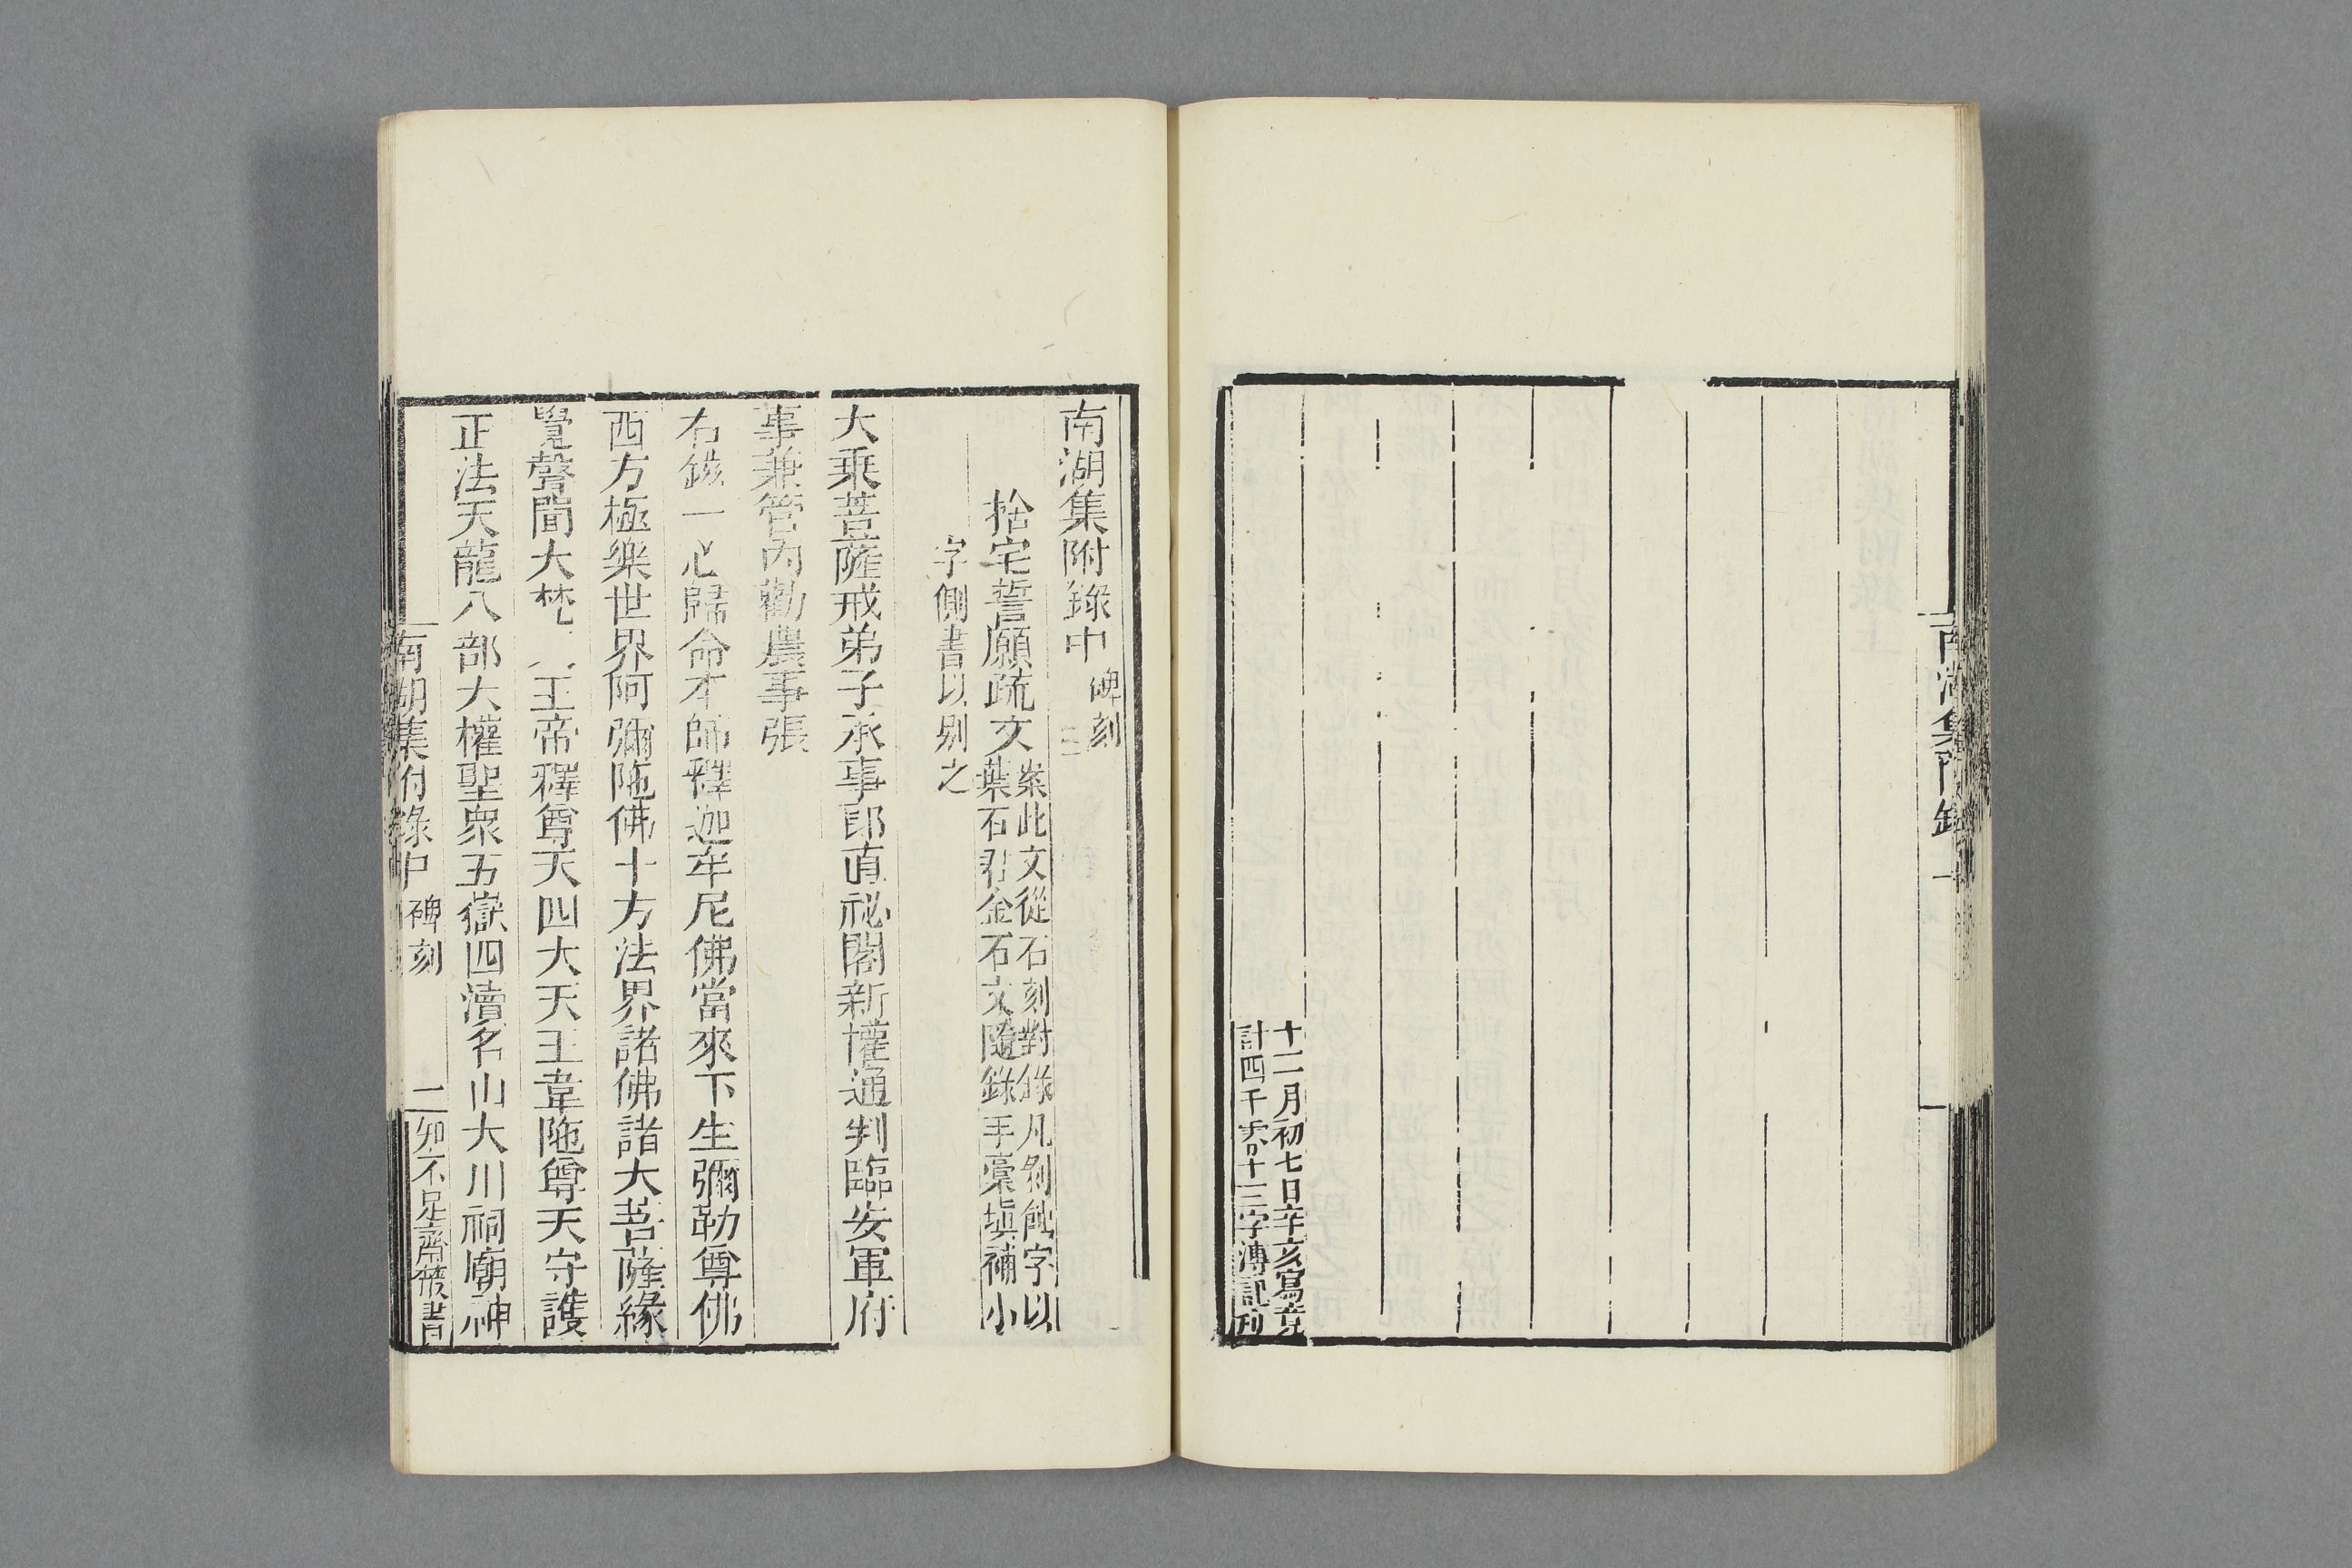 十二月初七日辛亥寫竟
計四千零十三字溥記刊
南湖集附錄
南湖集附錄中 碑刻
捨宅誓願疏文 案此文從石刻對錄凡剝蝕字以
葉石君金石文隨錄手藁塡補小
字側書以别之
大乘菩薩戒弟子承事郎直祕閣新權通判臨安軍府
事兼管內勸農事張
右鎡一心歸命本師釋迦牟尼佛當來下生彌勒尊佛
西方極樂世界阿彌陁佛十方法界諸佛諸大菩薩緣
覺聲聞大梵 王帝釋尊天四大天王韋陁尊天守護
正法天龍八部大權聖衆五嶽四瀆名山大川祠廟神
南湖集附錄中 碑刻 二 知不足齋叢書